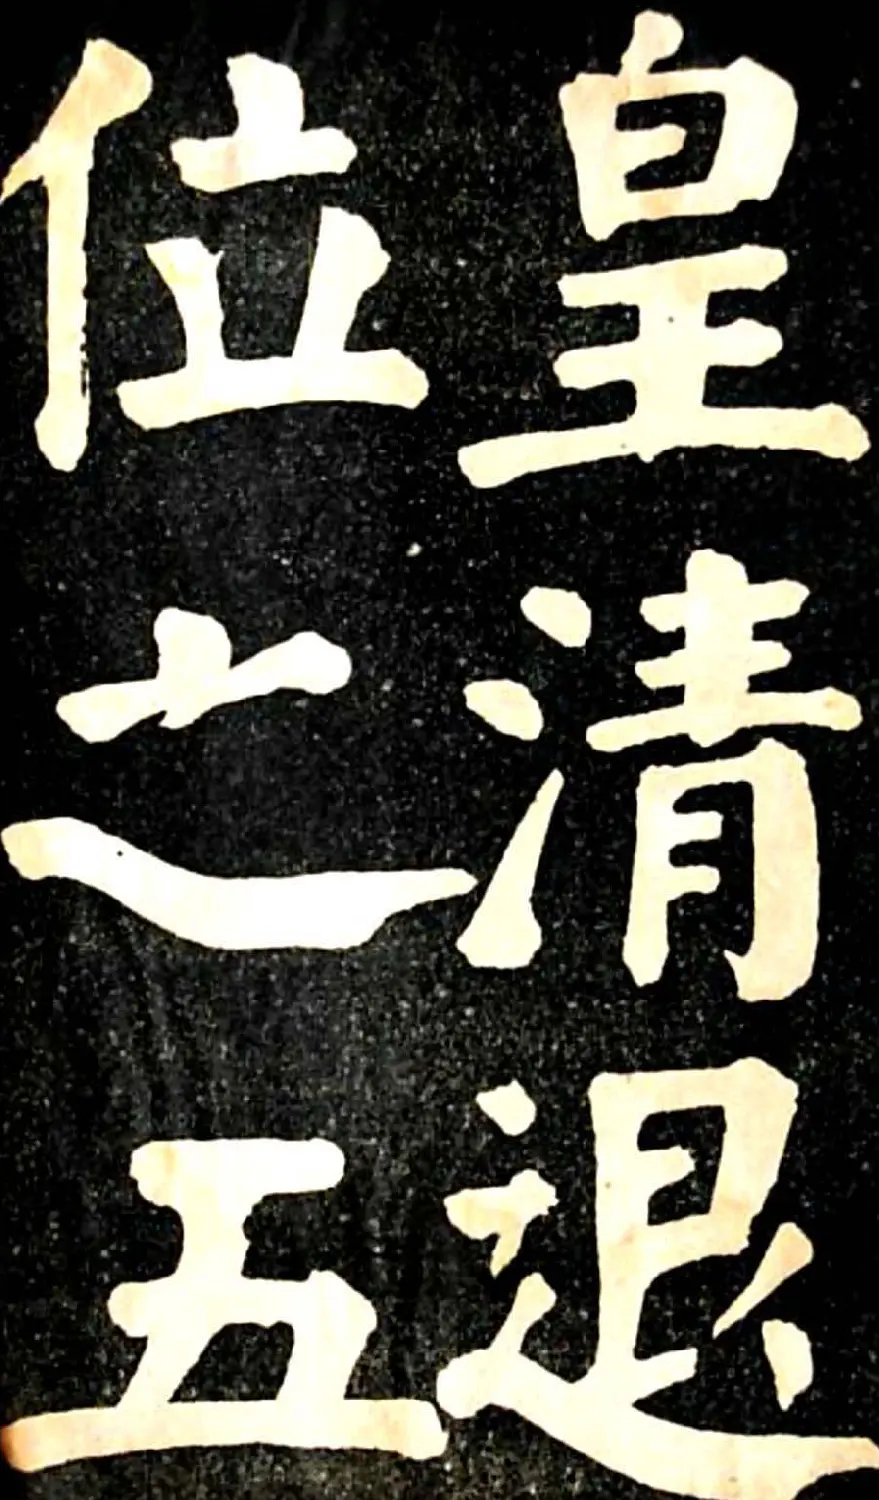 皇清退
位之五